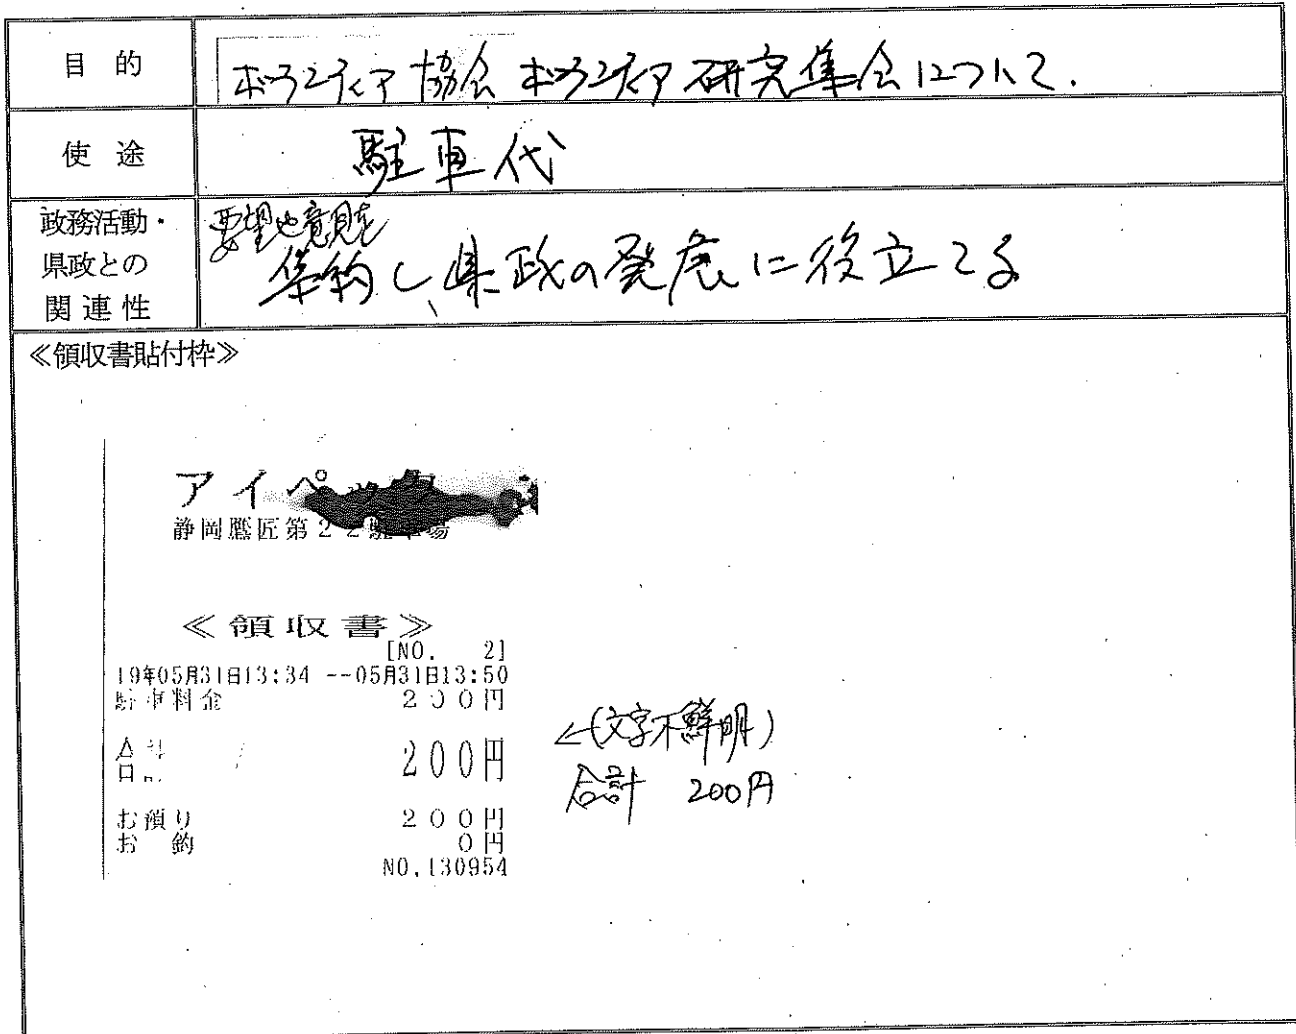 目的
ボランティア協会 ボランティア研究集会について.
使途
駐車代
政務活動・
県政との
関連性
要望や意見を
集約し、県政の発展に役立てる
≪領収書貼付枠≫
アイペック
静岡鷹匠第22駐車場
≪領収書≫
[NO. 2]
19年05月31日13:34 --05月31日13:50
駐車料金 200円
合計 200円
←(文字不鮮明)
合計 200円
お預り 200円
お釣 0円
NO.130954